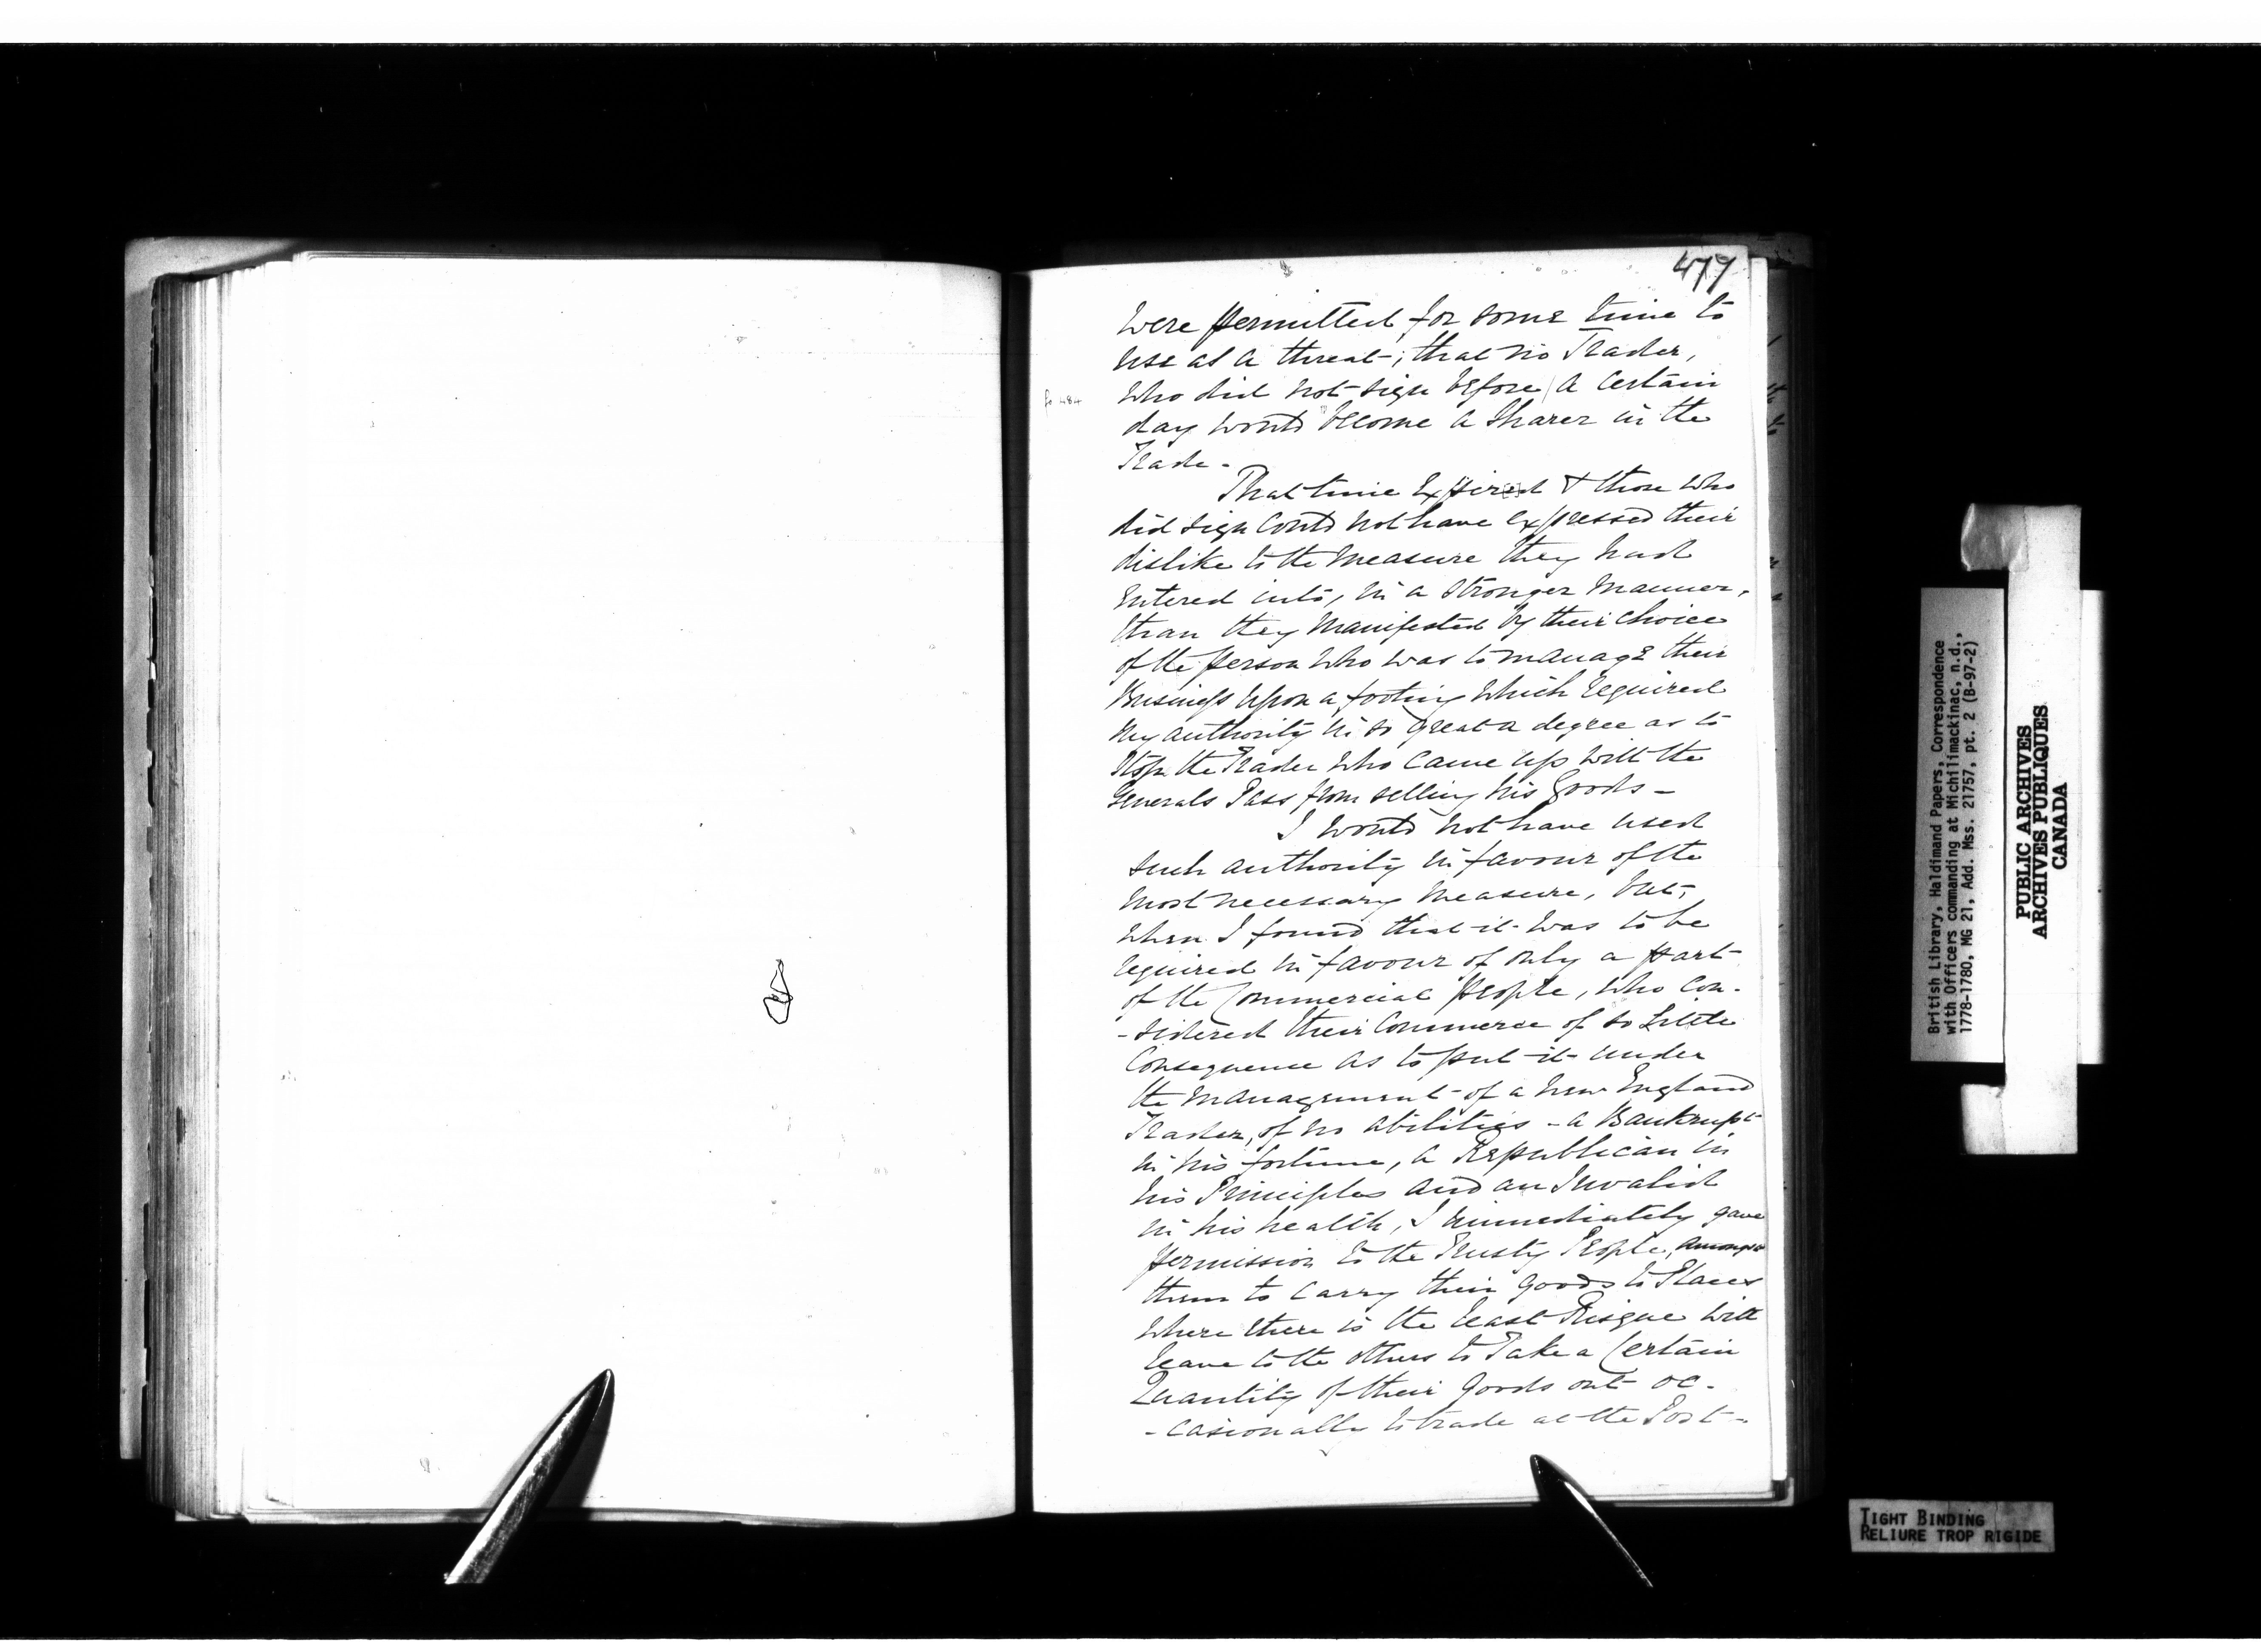 477
were permitted, for some time to
use as a threat; that no Trader,
who did not sign before / a certain
fo 484
day would become a Sharer in the
Trade -
That time Expired & those who
did sign could not have expressed their
dislike to the measure they had
entered into, in a stronger manner,
than they manifested by their choice
of the person who was to manage their
Business upon a footing which required
my authority in so great a degree as to
stop the Trader who came up with the
Generals Pass from selling his Goods -
I would not have used
such authority in favour of the
most necessary measure, but,
when I found that it was to be
required in favour of only a part
of the Commercial people, who con-
-sidered their Commerce of so Little
Consequence as to put it under
the management of a New England
Trader, of no abilities - a Bankrupt
in his fortune, a Republican in
his Principles and an Invalid
in his health, I immediately gave
permission to the Trusty People, amongst
them to carry their goods to Places
where there is the least Risque with
leave to the others to Take a Certain
Quantity of their Goods out oc-
-casionally to trade at the Post -
British Library, Haldimand Papers, Correspondence
with Officers commanding at Michilimackinac, n.d.,
1778-1780, MG 21, Add. Mss. 21757, pt. 2 (B-97-2)
PUBLIC ARCHIVES
ARCHIVES PUBLIQUES
CANADA
TIGHT BINDING
RELIURE TROP RIGIDE